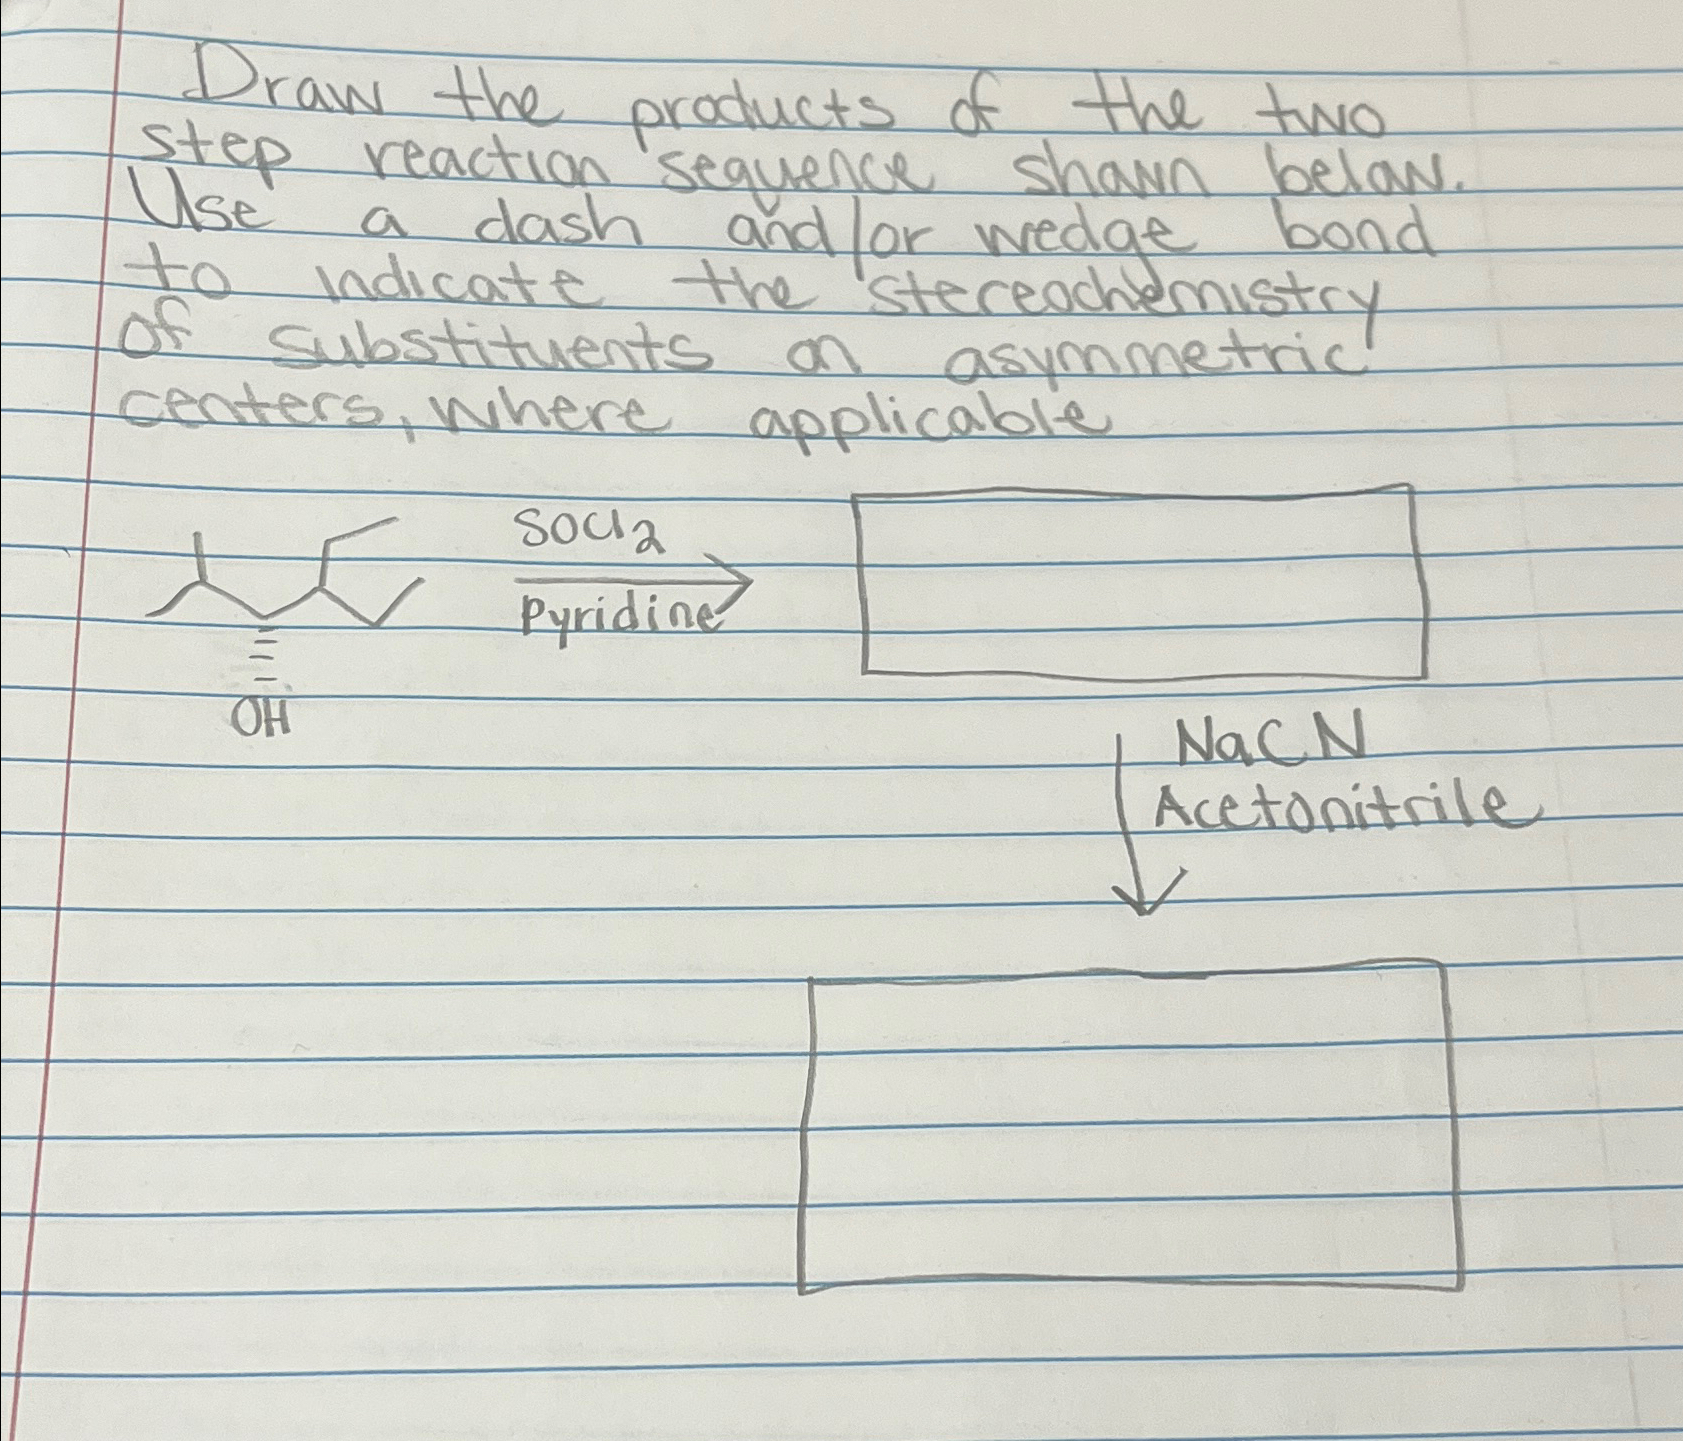 Draw the products of the two
step reaction sequence shown below.
Use a dash and/or wedge bond
to indicate the stereochemistry
of substituents on asymmetric
centers, where applicable
SOCl2
Pyridine
OH
NaCN
Acetonitrile